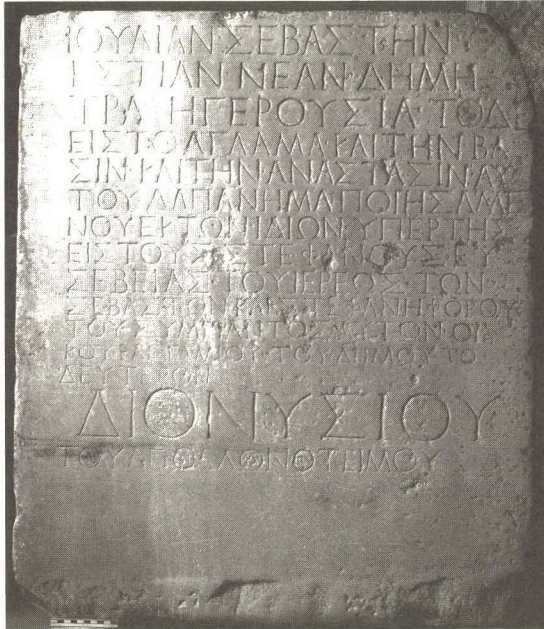 ΙΟΥΛΙΑΝ ΣΕΒΑΣΤΗΝ
ΕΣΤΙΑΝ ΝΕΑΝ ΔΗΜΗ
ΤΡΑ Η ΓΕΡΟΥΣΙΑ ΤΟ ΔΕ
ΕΙΣ ΤΟ ΑΓΑΛΜΑ ΚΑΙ ΤΗΝ ΒΑ
ΣΙΝ ΚΑΙ ΤΗΝ ΑΝΑΣΤΑΣΙΝ ΑΥ
ΤΟΥ ΔΑΠΑΝΗΜΑ ΠΟΙΗΣΑΜΕ
ΝΟΥ ΕΚ ΤΩΝ ΙΔΙΩΝ ΥΠΕΡ ΤΗΣ
ΕΙΣ ΤΟΥΣ ΣΤΕΦΑΝΟΥΣ ΕΥ
ΣΕΒΕΙΑΣ ΤΟΥ ΙΕΡΕΩΣ ΤΩΝ
ΣΕΒΑΣΤΩΝ ΚΑΙ ΣΤΕΦΑΝΗΦΟΡΟΥ
ΤΟΥ ΣΥΜΠΑΝΤΟΣ ΑΥΤΩΝ ΟΙ
ΚΟΥ ΚΑΙ ΤΑΜΙΟΥ ΤΟΥ ΔΗΜΟΥ ΤΟ
ΔΕΥΤΕΡΟΝ
ΔΙΟΝΥΣΙΟΥ
ΤΟΥ ΑΠΟΛΛΩΝΟΤΕΙΜΟΥ